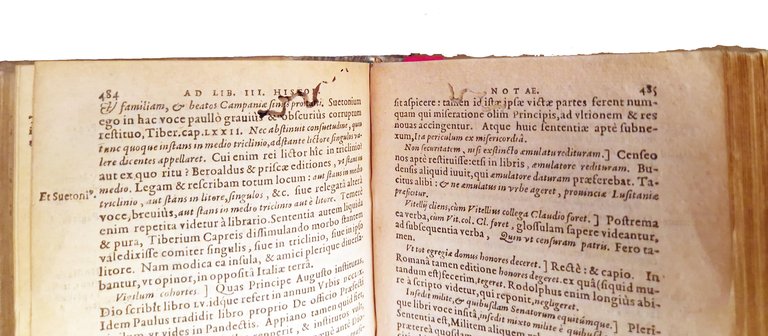 484 AD LIB. III. HISTO
& familiam, & beatos Campaniæ sinus Suetonium
ego in hac voce paullò grauiùs & obscuriùs corruptum
restituo, Tiber. cap. LXXII. Nec abstinuit consuetudine, quin
tunc quoque instans in medio triclinio, adstante lictore singulos va-
lere dicentes appellaret. Cui enim rei lictor hîc in triclinio?
aut ex quo ritu? Beroaldus & priscæ editiones, vt stans in
medio. Legam & rescribam totum locum: aut stans in
triclinio, aut stans in litore, singulos, &c. siue relegatâ alterâ
voce, breuiùs, aut stans in medio triclinio aut è litore. Temerè
enim repetita videtur à librario. Sententia autem liquida
& pura, Tiberium Capreis dissimulando morbo stantem
valedixisse comiter singulis, siue in triclinio, siue in ipso
litore. Nam modica ea insula, & amici plerique diuersa-
bantur, vt opinor, in oppositâ Italiæ terrâ.
Vigilum cohortes.] Quas Principe Augusto institutas,
Dio scribit libro LV. idque refert in annum Vrbis
Idem Paulus tradidit libro De officio Præfecti
vt vides in Pandectis. Appiano tamen
& infinitos
Et Suetoniº.
NOTAE. 485
sit aspicere: tamen id istæ ipsæ victæ partes ferent num-
quam qui miseratione olim Principis, ad vltionem & res
nouas accingentur. Atque huic sententiæ aptè subne-
xum, Ita periculum ex misericordiâ.
Non securitatem, nisi exstincto æmulatu redituram.] Censeo
nos aptè restituisse: etsi in libris, æmulatore redituram. Bu-
densis aliquid iuuit, qui æmulatorem daturam præferebat. Ta-
citus alibi: & ne æmulatus in vrbe ageret, prouinciæ Lusitaniæ
præficitur.
Vitellij cliens, cum Vitellius collega Claudio foret.] Postrema
ea verba, cum Vit. col. Cl. foret, glossulam sapere videantur,
ad subsequentia verba, Quin vt censuram patris. Fero ta-
men.
Vt tot egregia domus honores deceret.] Rectè: & capio. In
Romanâ tamen editione honores degeret. ex quâ (si quid mu-
tandum est) fecerim, tegeret. Rodolphus enim longiùs abi-
re à scripto videtur, qui reponit, negligeret.
Insedit milite, & quibusdam Senatorum equitumque.] Plera-
que libri voce insitâ, insedit iuxto milite & quibusdam
est, Militem aliquem